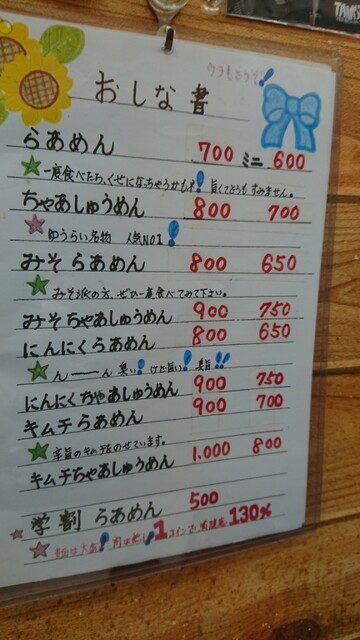 ウラもどうぞ!!
おしな書
らあめん 700 ミニ 600
一度食べたら、くせになっちゃうかもネ! 旨くてどうもすみません。
ちゃあしゅうめん 800 700
ゆうらい名物 人気NO1!
みそらあめん 800 650
みそ派の方、ぜひ一度食べてみて下さい。
みそちゃあしゅうめん 900 750
にんにくらあめん 800 650
ん〜〜ん 臭い! けど旨い! 美旨!!
にんにくちゃあしゅうめん 900 750
キムチらあめん 900 700
辛旨のキムチをのせています。
キムチちゃあしゅうめん 1,000 800
学割らあめん 500
麺は大盛! 肉は無し! 1コインで 満足度 130%